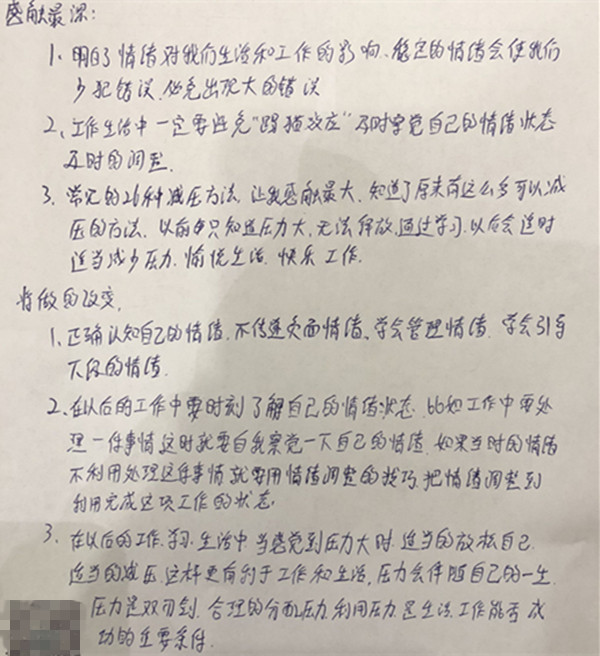 感触最深:
1、明白了情绪对我们生活和工作的影响、稳定的情绪会使我们
少犯错误、避免出现大的错误
2、工作生活中一定要避免"踢猫效应"及时察觉自己的情绪状态
及时的调整.
3、常见的26种减压方法,让我感触最大,知道了原来有这么多可以减
压的方法,以前只知道压力大,无法释放,通过学习,以后会适时
适当减少压力,愉悦生活,快乐工作.
将做的改变.
1、正确认知自己的情绪,不传递负面情绪、学会管理情绪,学会引导
下属的情绪.
2、在以后的工作中要时刻了解自己的情绪状态,比如工作中要处
理一件事情,这时就要自我察觉一下自己的情绪,如果当时的情绪
不利用处理这件事情,就要用情绪调整的技巧,把情绪调整到
利用完成这项工作的状态.
3、在以后的工作.学习.生活中,当感觉到压力大时,适当的放松自己.
适当的减压,这样更有利于工作和生活,压力会伴随自己的一生.
压力是双刃剑,合理的分配压力,利用压力是生活、工作能否成
功的主要条件.